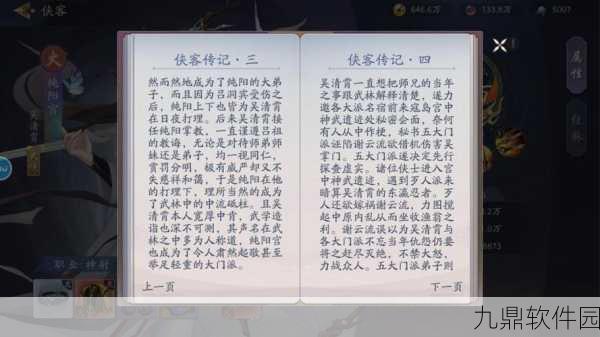 侠客
646.6万
133.8万
5007
侠客传记·三
然而然地成为了纯阳的大弟
子，而且因为吕洞宾受伤之
后，纯阳上下也皆为吴清霄
在日夜打理。后来吴清霄接
任纯阳掌教，一直谨遵吕祖
的教诲，无论是对待师弟师
妹还是弟子，均一视同仁，
赏罚分明，极有威严却又不
失慈祥和蔼，于是纯阳在他
的打理下，理所当然的成为
了武林中的中流砥柱。且吴
清霄本人宽厚中肯，武学造
诣也深不可测，其声名在武
林之中多为人称道，纯阳宫
也成为了令人肃然起敬甚至
举足轻重的大门派。
上一頁
侠客传记·四
吴清霄一直想把师兄的当年
之事跟武林解释清楚，遂力
邀各大派名宿前来寇岛宫中
神武遗迹处秘密会面，奈何
有人从中作梗，秘书五大门
派诬陷谢云流欲借机伤害吴
掌门。五大门派遂决定先行
探查虚实。诸位侠士进入宫
中神武遗迹，遇到歹人派来
暗算吴清霄的东瀛忍者。歹
人还欲嫁祸谢云流，力图搅
起中原内乱从而坐收渔翁之
利。谢云流误以为吴清霄与
各大门派不忘当年仇怨仍要
将之赶尽灭绝，不禁大怒，
力战众人。五大门派弟子则
下一頁
火
纯阳宫
吴清霄
职业:神射
属性
九鼎软件园